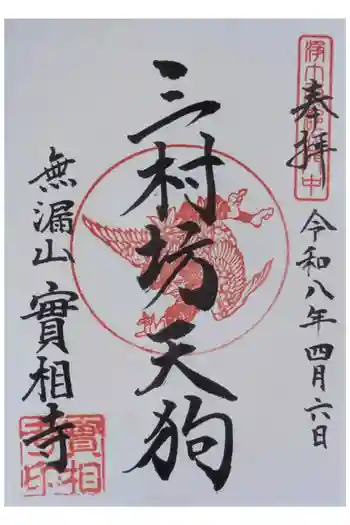 奉拝
令和八年四月六日
三村坊天狗
無漏山
實相寺
實相
寺印